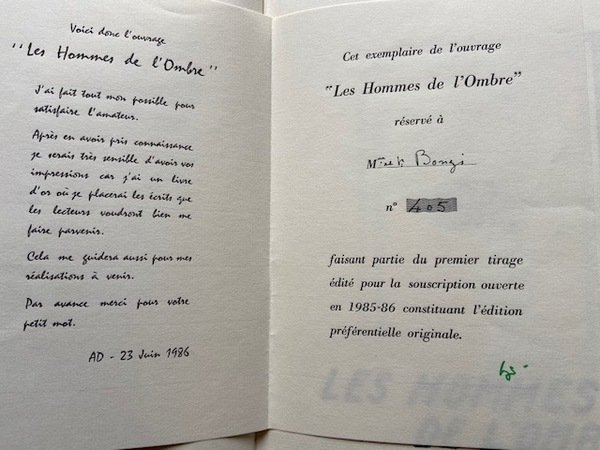 Voici donc l'ouvrage
"Les Hommes de l'Ombre"
J'ai fait tout mon possible pour
satisfaire l'amateur.
Après en avoir pris connaissance
je serais très sensible d'avoir vos
impressions car j'ai un livre
d'or où je placerai les écrits que
les lecteurs voudront bien me
faire parvenir.
Cela me guidera aussi pour mes
réalisations à venir.
Par avance merci pour votre
petit mot.
AD - 23 Juin 1986
Cet exemplaire de l'ouvrage
"Les Hommes de l'Ombre"
réservé à
Bongi
n° 405
faisant partie du premier tirage
édité pour la souscription ouverte
en 1985-86 constituant l'édition
préférentielle originale.
LES HOMMES
DE L'OMB